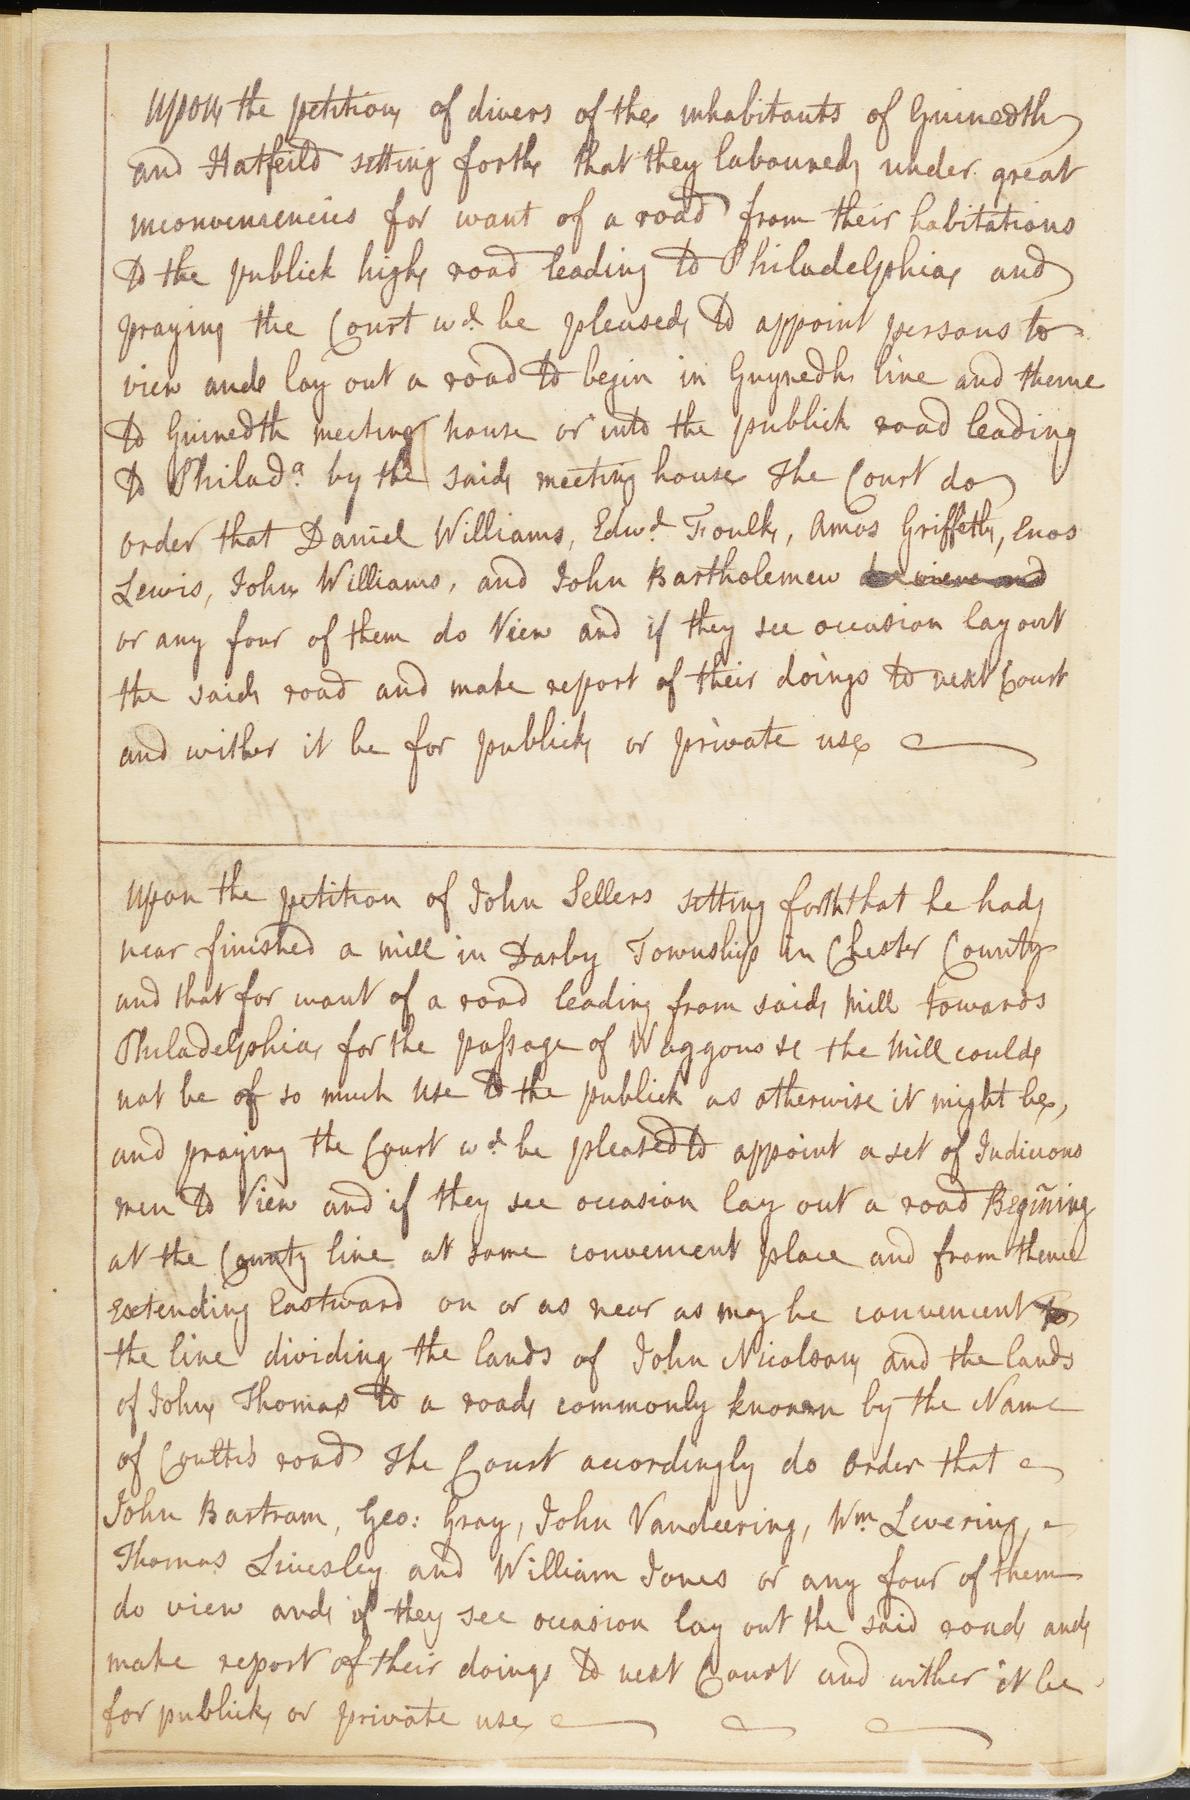 Upon the petition of divers of the inhabitants of Guinedth
and Hatfeild setting forth that they laboured under great
inconveniencies for want of a road from their habitations
to the publick high road leading to Philadelphia and
praying the Court wd. be pleased to appoint persons to
view and lay out a road to begin in Gwynedh line and thence
to Guinedth meeting house or into the publick road leading
to Philada. by the said meeting house The Court do
order that Daniel Williams, Edwd. Foulk, Amos Griffeth, Enos
Lewis, John Williams, and John Bartholemew do view and
or any four of them do View and if they see occasion lay out
the said road and make report of their doings to next Court
and wither it be for publick or private use
Upon the petition of John Sellers setting forth that he had
near finished a mill in Darby Township in Chester County
and that for want of a road leading from said Mill towards
Philadelphia for the passage of Waggons &c the Mill could
not be of so much use to the publick as otherwise it might be,
and praying the Court wd. be pleased to appoint a set of Judicious
men to View and if they see occasion lay out a road Begining
at the County line at some convenient place and from thence
Extending Eastward on or as near as may be convenient to
the line dividing the lands of John Nicolson and the lands
of John Thomas to a road commonly known by the Name
of Coultis road The Court accordingly do Order that
John Bartram, Geo: Gray, John Vandeering, Wm. Levering,
Thomas Livesley and William Jones or any four of them
do view and if they see occasion lay out the said road and
make report of their doings to next Court and wither it be
for publick or private use